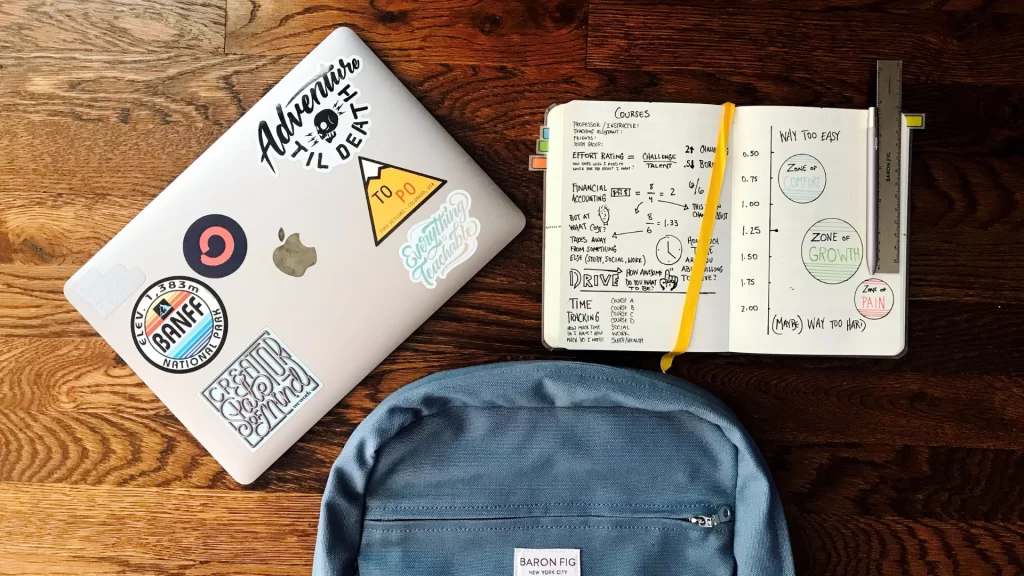 Adventure
'TIL DEATH
TO PO
ELEV. 1,383m
BANFF
NATIONAL PARK
Everything
Teachable
CREATOR
State
OF
Mind
COURSES
PROFESSOR / INSTRUCTOR:
TEACHING ASSISTANT:
FRIENDS:
STUDY GROUP:
EFFORT RATING = CHALLENGE
TALENT
2↑
.5↓
FINANCIAL
ACCOUNTING
8
4
= 2
6/6
BUT AT
WHAT COST?
8
6
= 1.33
TAKES AWAY
FROM SOMETHING
ELSE (STUDY, SOCIAL, WORK)
DRIVE
HOW AWESOME
DO YOU WANT
TO BE?
TIME
TRACKING
HOW MUCH TIME
DO I HAVE? HOW
MUCH DO I NEED?
COURSE A
COURSE B
COURSE C
COURSE D
SOCIAL
WORK
SLEEP/HEALTH
WAY TOO EASY
0.50
0.75
1.00
1.25
1.50
1.75
2.00
ZONE OF
COMFORT
ZONE OF
GROWTH
ZONE OF
PAIN
(MAYBE) WAY TOO HARD
BARON FIG
BARON FIG
NEW YORK CITY